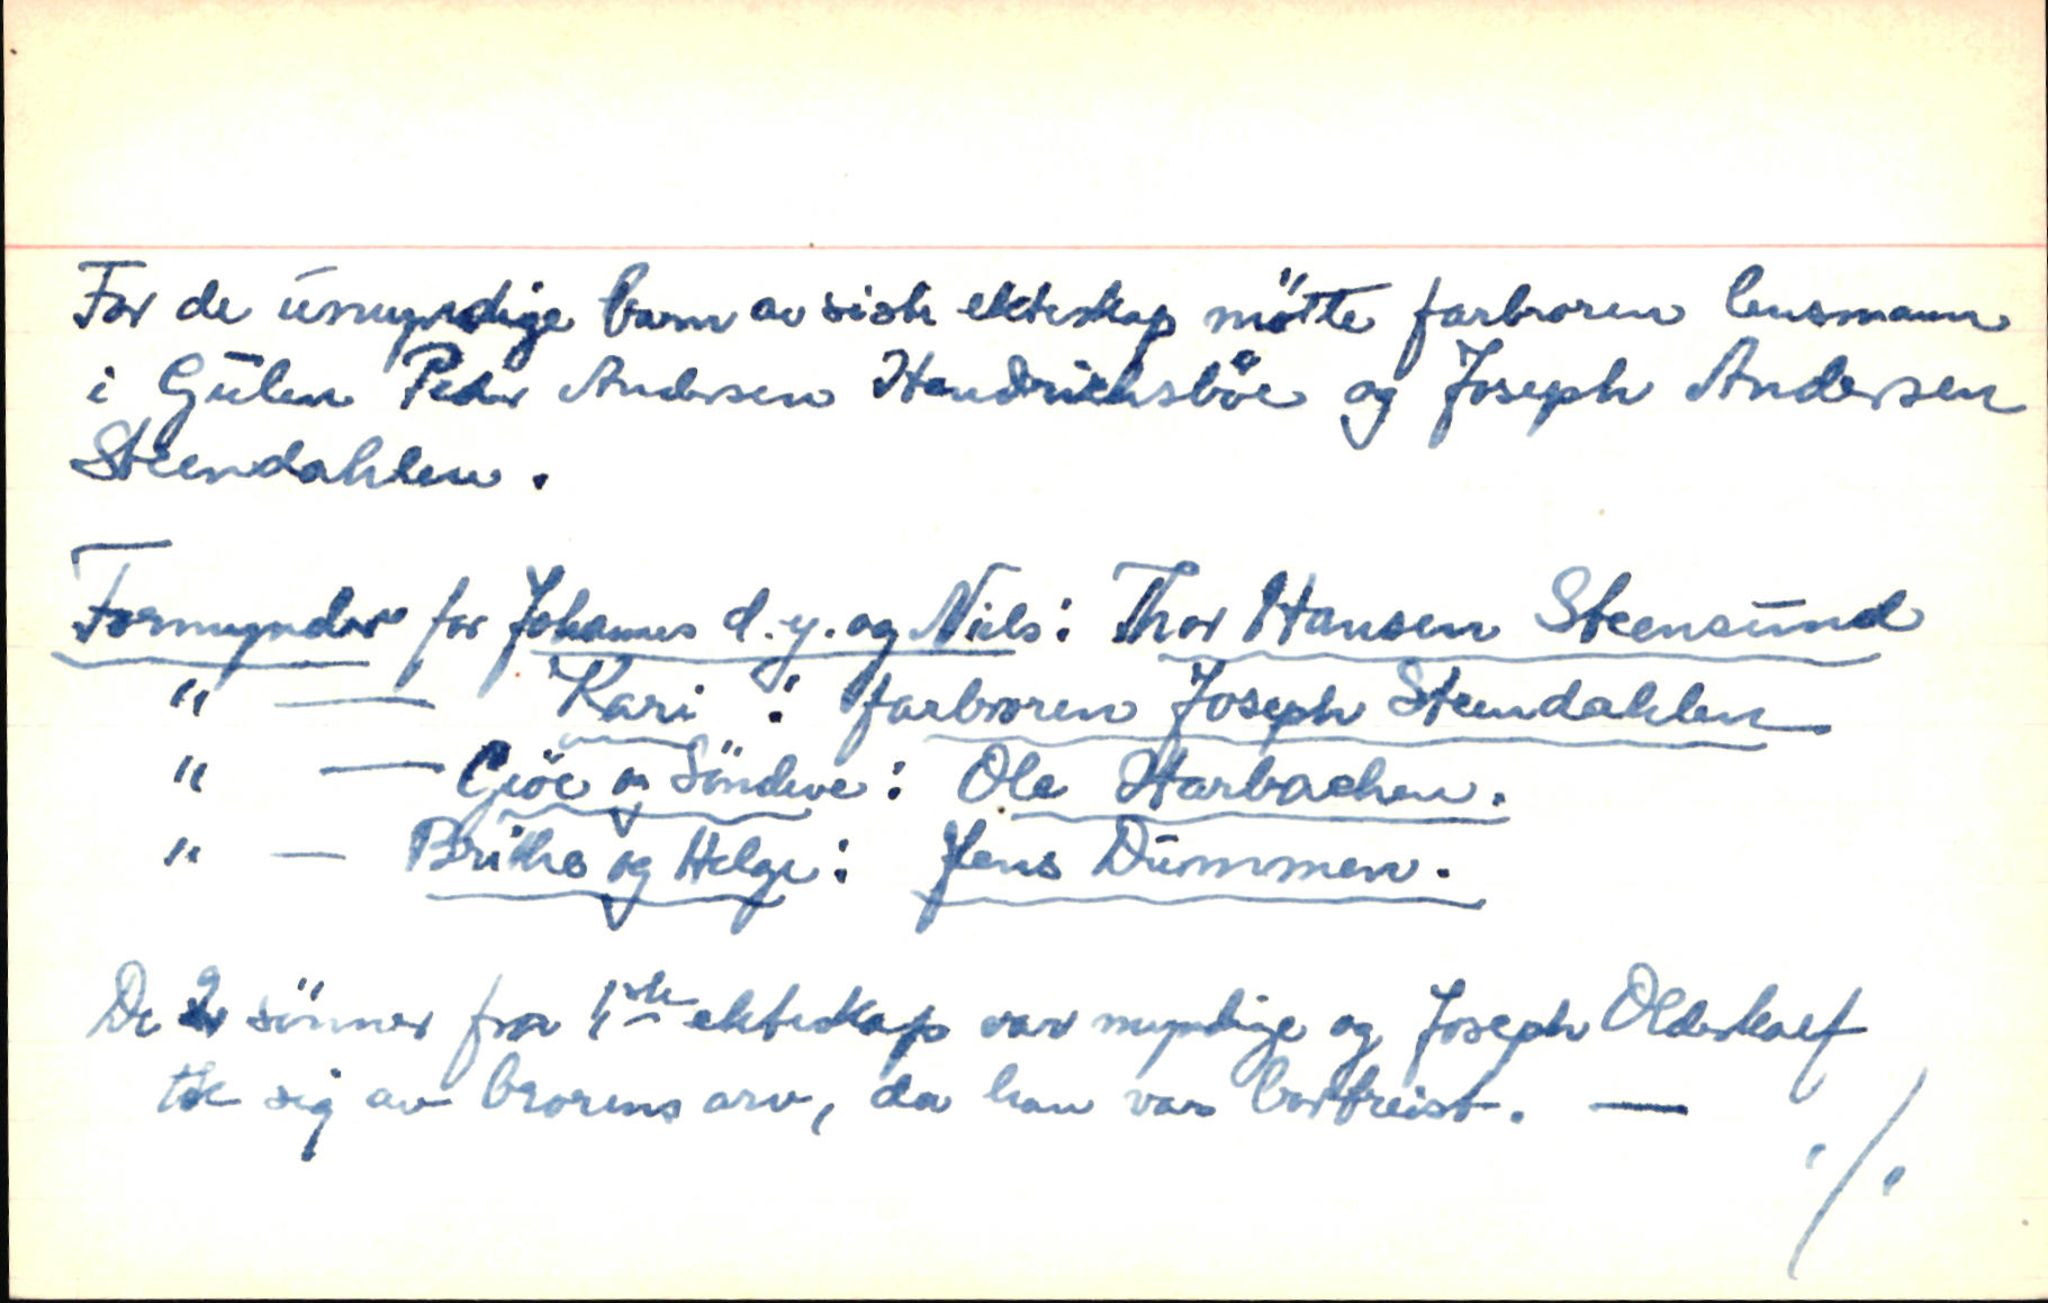 For de umyndige barn av siste ekteskap mötte farbroren lensmann
i Gulen Peder Andersen Hendrichsböe og Joseph Andersen
Steendahlen.
Formynder for Johannes d.y. og Niels: Thor Hansen Steensund
" — Kari : farbroren Joseph Steendahlen
" — Gjöe og Sündeve: Ole Harbachen.
" — Brithe og Helge: Jens Dummen.
De 2 sönner fra 1ste ekteskap var myndige og Joseph Olderkalf
tok sig av brorens arv, da han var bortreist. —
./.